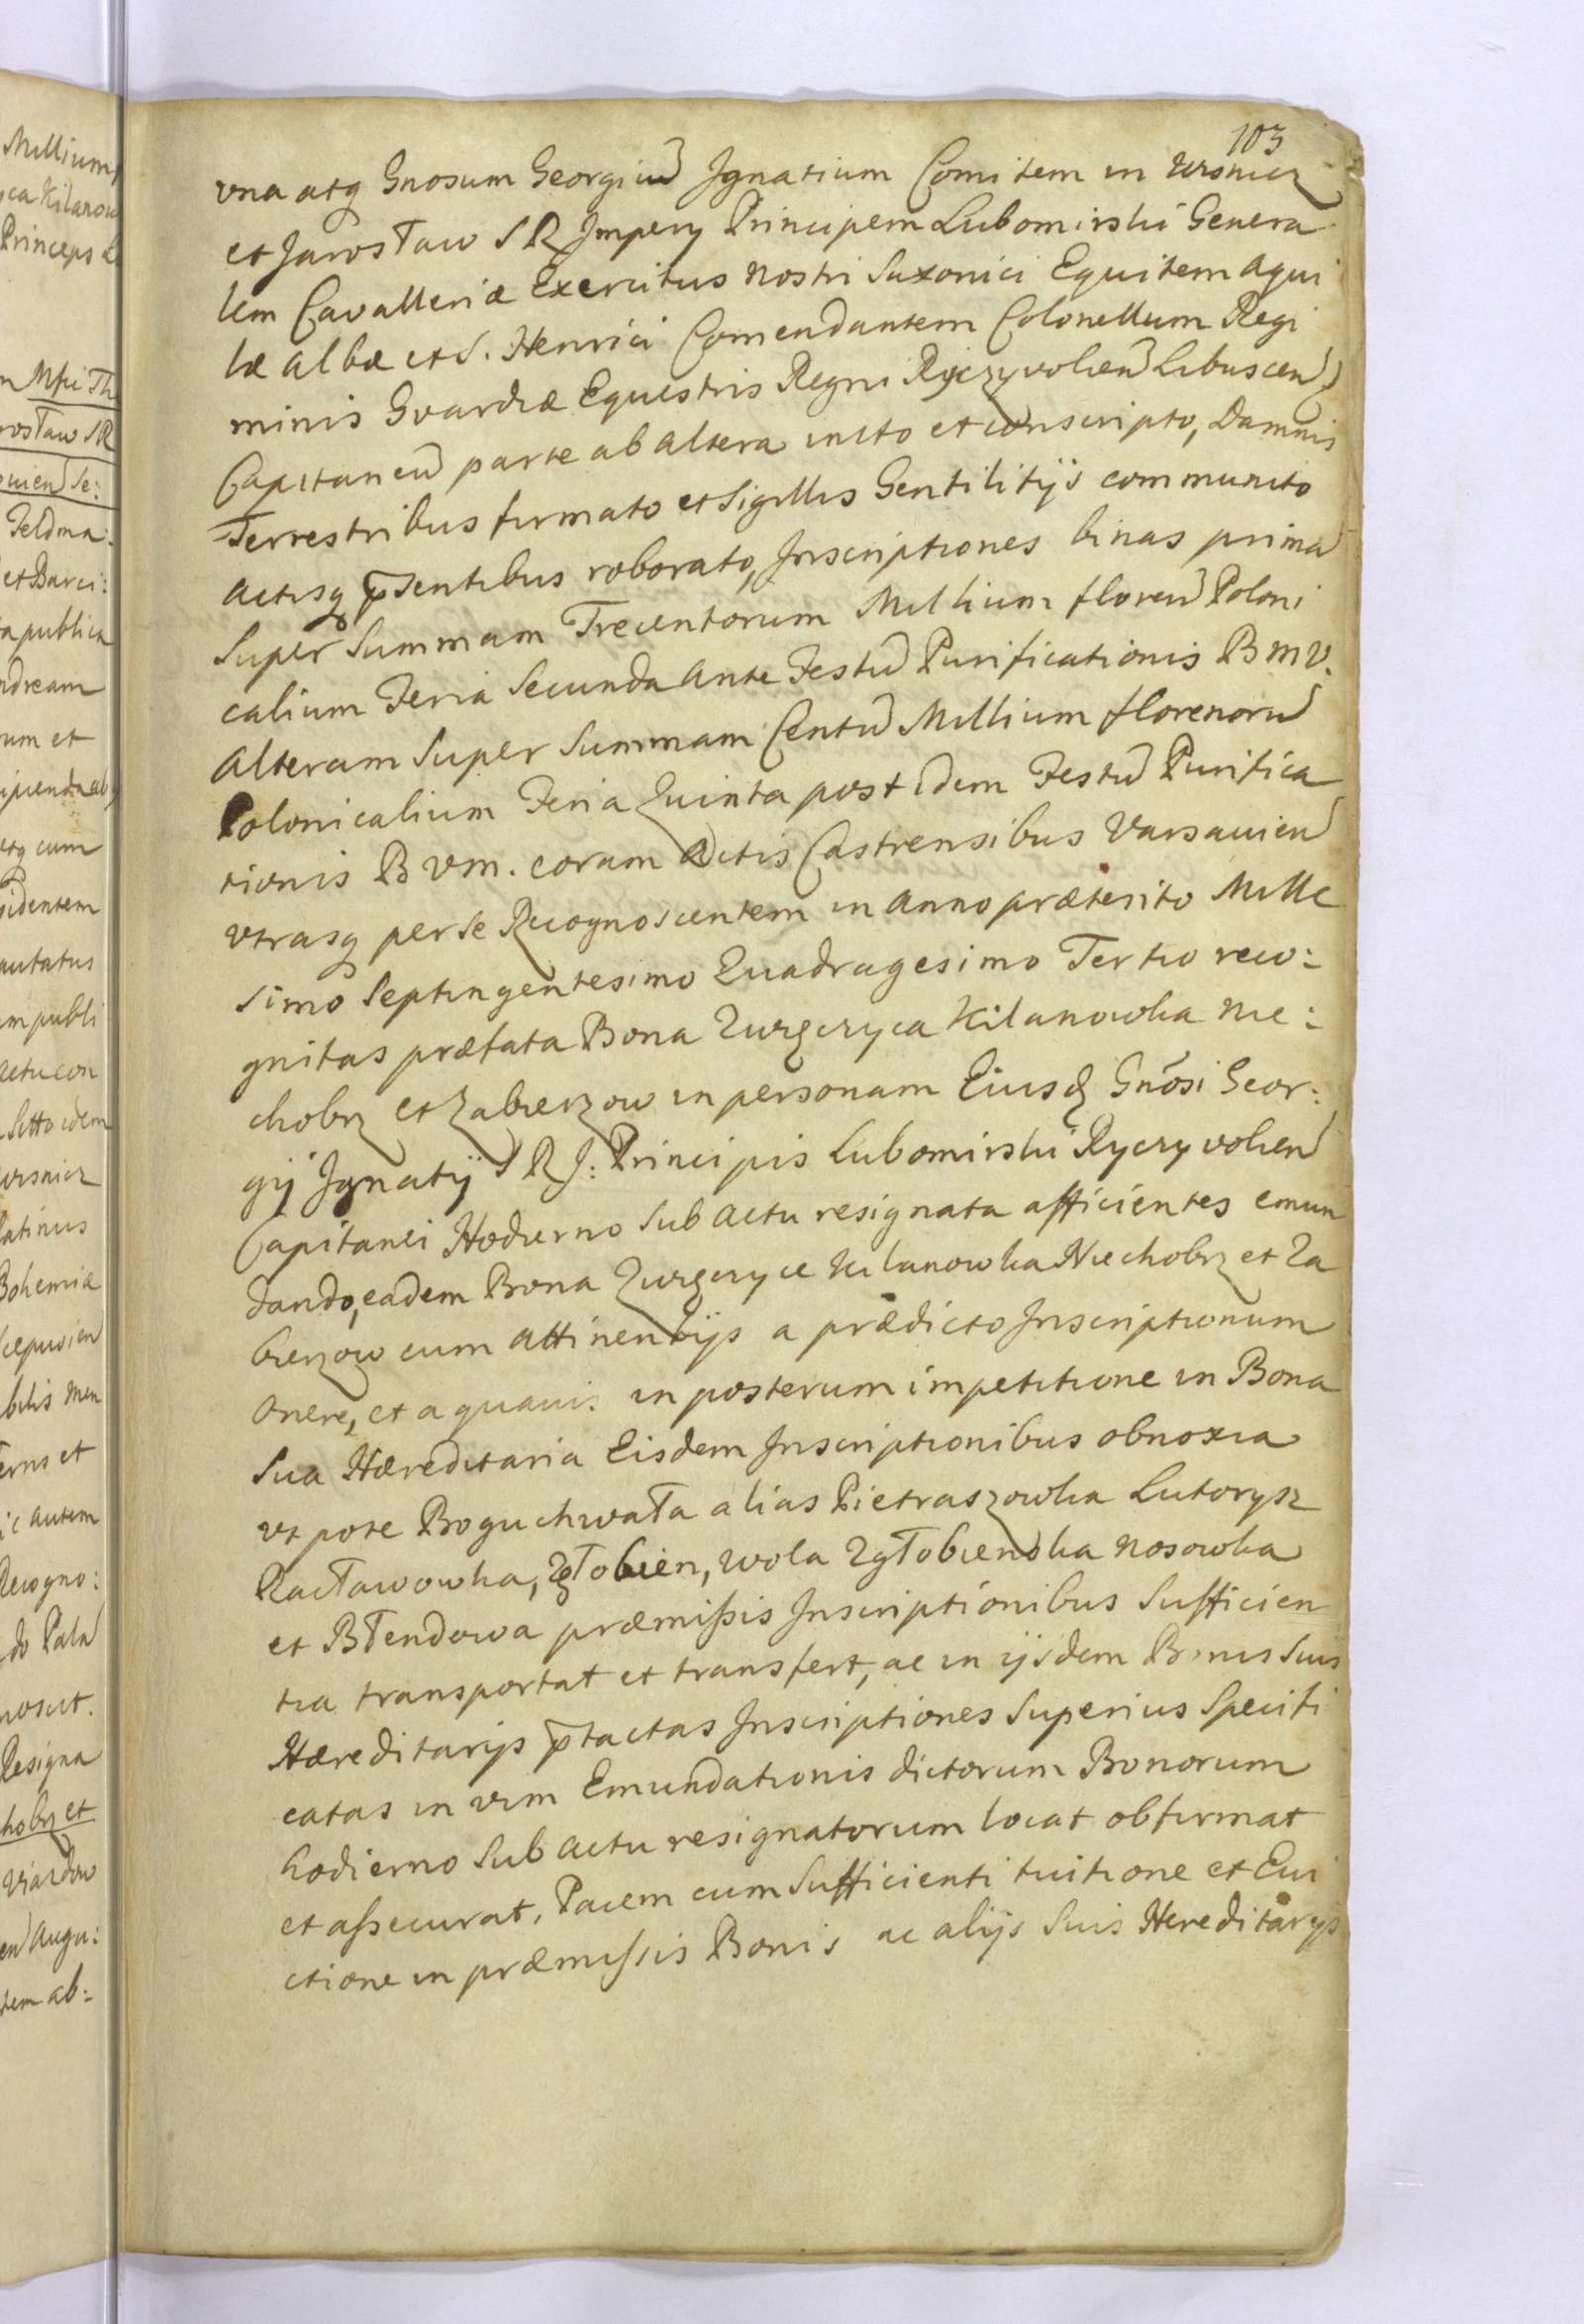 103
vna atq Gnosum Georgiu Ignatium Comitem in Wisnicz
et Jarosław S R Impery Principem Lubomirski Genera
lem Cavalleriæ Exercitus nostri Saxonici Equitem Aqui
læ albæ et S. Henrici Comendantem Colonellum Regi
minis Gvardiæ Equestris Regni Ryczyvolien Libuscen
Capitaneu parte ab altera inito et conscripto, Damnis
Terrestribus firmato et Sigillis Gentilitijs communito
actisq psentibus roborato, Inscriptiones binas prima
Super Summam Trecentorum Millium floren Poloni
calium Feria Secunda Ante Festu Purificationis B M V.
Alteram Super Summam Centu Millium florenoru
Polonicalium Feria Quinta post idem Festu Purifica
tionis B V M. coram Actis Castrensibus Varsauien
vtrasq per se Recognoscentem in Anno præterito Mille
simo Septingentesimo Quadragesimo Tertio reco:
gnitas præfata Bona Zurgczyca Kilanowka Nie:
chobrz et Zabierzow in personam Eiusd Gnosi Geor:
gij Ignatij S R J: Principis Lubomirski Ryczyvolien
Capitanei Hodierno Sub actu resignata afficientes emun
dando, eadem Bona Zurgczyce Kilanowka Niechobrz et Za
bierzow cum attinentijs a prædicto Inscriptionum
Onere, et a quavis in posterum impetitione in Bona
Sua Hæreditaria Eisdem Inscriptionibus obnoxia
vt pote Boguchwała alias Pietraszowka Lutorysz
Racławowka, Zgłobien, Wola Zgłobienska Nosowka
et Błendowa præmissis Inscriptionibus Sufficien
tia transportat et transfert, ac in ijsdem Bonis Suis
Hæreditarijs ptactas Inscriptiones Superius Specifi
catas in vim Emundationis dictorum Bonorum
hodierno Sub actu resignatorum locat obfirmat
et assecurat. Pacem cum Sufficienti tuitione et Evi
ctione in præmissis Bonis ac alijs Suis Hereditarijs